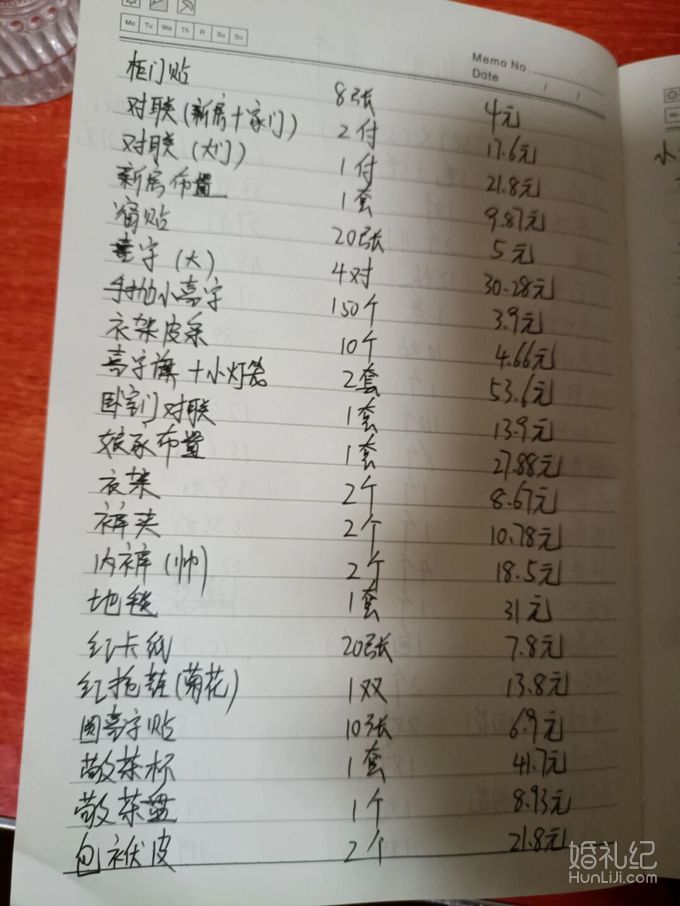 Mo Tu We Th Fr Sa Su
Memo No.
Date / /
柜门贴 8张 4元
对联(新房+家门) 2付 17.6元
对联(大门) 1付 21.8元
新房布置 1套 9.87元
窗贴 20张 5元
喜字(大) 4对 30.28元
手抛小喜字 150个 3.9元
衣架皮条 10个 4.66元
喜字旗+小灯笼 2套 53.6元
卧室门对联 1套 13.9元
娘家布置 1套 27.88元
衣架 2个 8.67元
裤夹 2个 10.78元
内裤(帅) 2个 18.5元
地毯 1套 31元
红卡纸 20张 7.8元
红拖鞋(菊花) 1双 13.8元
圆喜字贴 10张 6.9元
敬茶杯 1套 41.7元
敬茶盘 1个 8.93元
包袱皮 2个 21.8元
小
婚礼纪
HunLiJi.com